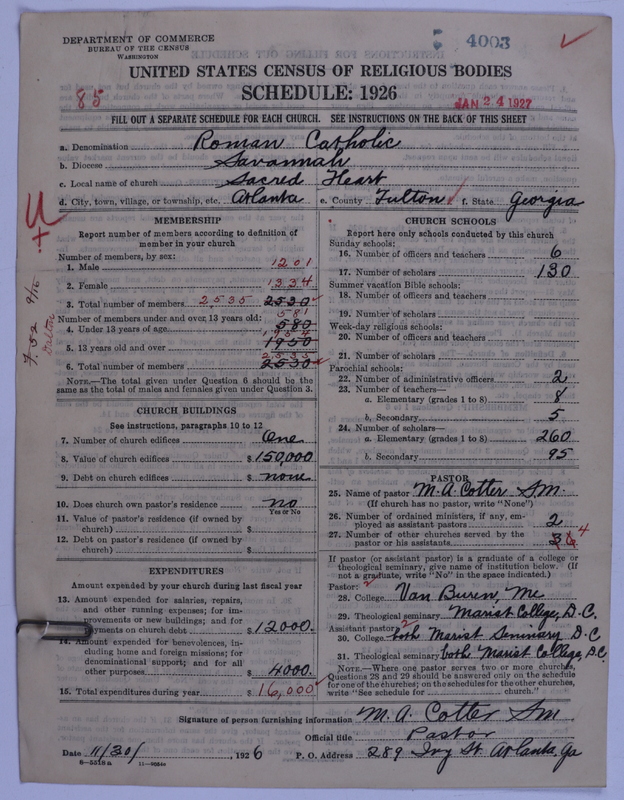 DEPARTMENT OF COMMERCE
BUREAU OF THE CENSUS
WASHINGTON
4003
85
UNITED STATES CENSUS OF RELIGIOUS BODIES
SCHEDULE: 1926
JAN 24 1927
FILL OUT A SEPARATE SCHEDULE FOR EACH CHURCH. SEE INSTRUCTIONS ON THE BACK OF THIS SHEET
a. Denomination Roman Catholic
b. Diocese Savannah
c. Local name of church Sacred Heart
d. City, town, village, or township, etc. Atlanta e. County Fulton f. State Georgia
MEMBERSHIP
Report number of members according to definition of
member in your church
Number of members, by sex:
1. Male 1201
2. Female 1334
3. Total number of members 2535 2530
Number of members under and over 13 years old: 581
4. Under 13 years of age 580
1954
5. 13 years old and over 1950
2535
6. Total number of members 2530
NOTE.—The total given under Question 6 should be the
same as the total of males and females given under Question 3.
CHURCH BUILDINGS
See instructions, paragraphs 10 to 12
7. Number of church edifices One
8. Value of church edifices $ 150,000
9. Debt on church edifices $ none
10. Does church own pastor's residence no
Yes or No
11. Value of pastor's residence (if owned by
church) $
12. Debt on pastor's residence (if owned by
church) $
EXPENDITURES
Amount expended by your church during last fiscal year
13. Amount expended for salaries, repairs,
and other running expenses; for im-
provements or new buildings; and for
payments on church debt $ 12000.
14. Amount expended for benevolences, in-
cluding home and foreign missions; for
denominational support; and for all
other purposes $ 4000.
15. Total expenditures during year $ 16,000
CHURCH SCHOOLS
Report here only schools conducted by this church
Sunday schools:
16. Number of officers and teachers 6
17. Number of scholars 130
Summer vacation Bible schools:
18. Number of officers and teachers
19. Number of scholars
Week-day religious schools:
20. Number of officers and teachers
21. Number of scholars
Parochial schools:
22. Number of administrative officers 2
23. Number of teachers—
a. Elementary (grades 1 to 8) 8
b. Secondary 5
24. Number of scholars—
a. Elementary (grades 1 to 8) 260
b. Secondary 95
PASTOR
25. Name of pastor M. A. Cotter SM.
(If church has no pastor, write "None")
26. Number of ordained ministers, if any, em-
ployed as assistant pastors 2
27. Number of other churches served by the
pastor or his assistants 4
If pastor (or assistant pastor) is a graduate of a college or
theological seminary, give name of institution below. (If
not a graduate, write "No" in the space indicated.)
Pastor:
28. College Van Buren, Me
29. Theological seminary Marist College, D.C.
Assistant pastor: 2
30. College both Marist Seminary D.C
31. Theological seminary both Marist College, D.C.
NOTE.—Where one pastor serves two or more churches,
Questions 28 and 29 should be answered only on the schedule
for one of the churches; on the schedules for the other churches,
write "See schedule for church."
Signature of person furnishing information M. A. Cotter SM
Official title Pastor
Date 11/30/, 1926 P. O. Address 289 Ivy St. Atlanta, Ga
8—5518a